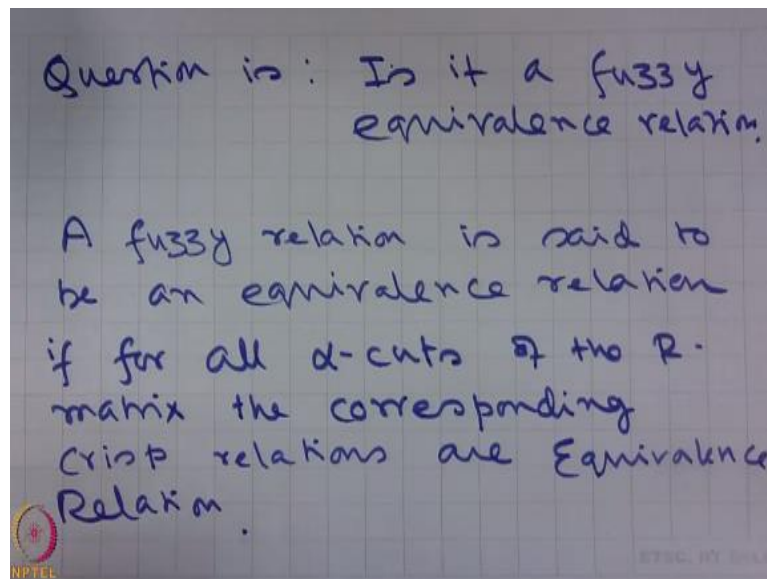 Question is : Is it a fuzzy
equivalence relation.
A fuzzy relation is said to
be an equivalence relation
if for all α-cuts of the R.
matrix the corresponding
crisp relations are Equivalence
Relation.
NPTEL